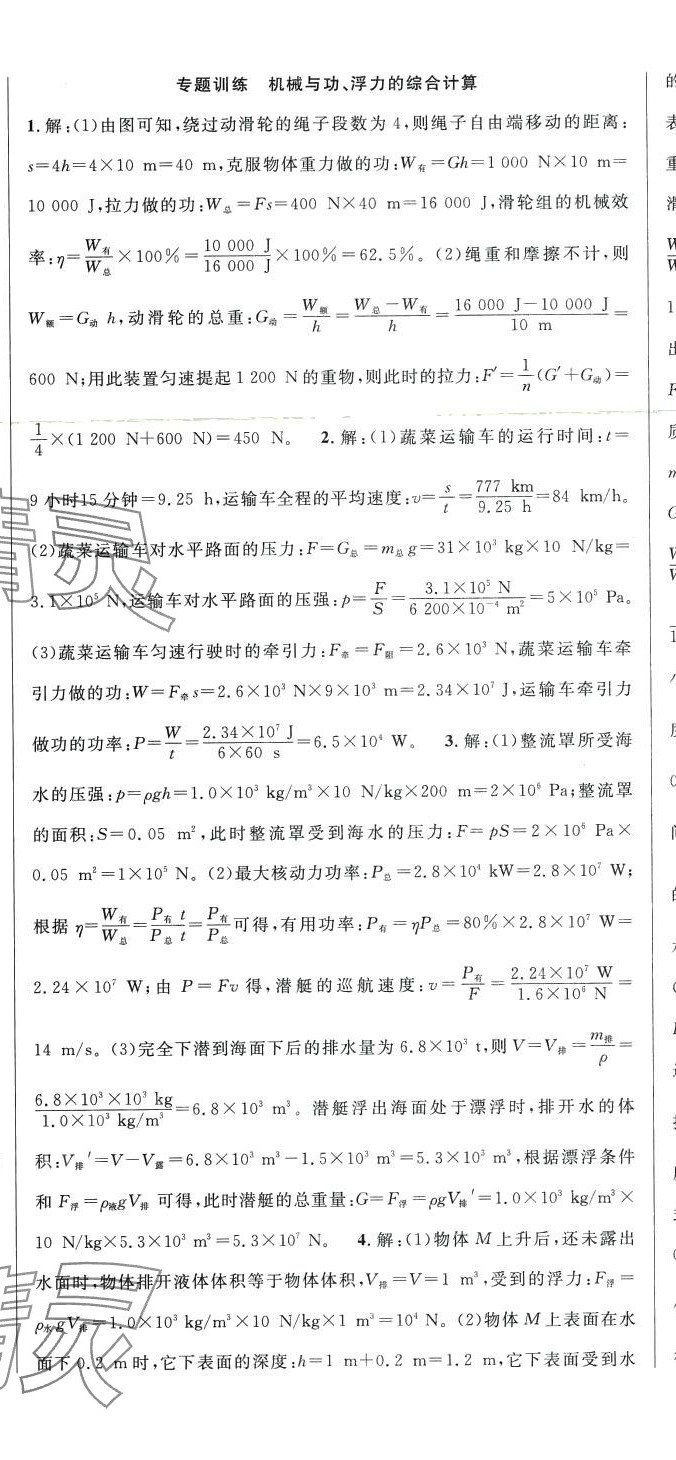 专题训练 机械与功、浮力的综合计算
1.解:(1)由图可知,绕过动滑轮的绳子段数为 4,则绳子自由端移动的距离:
s=4h=4×10 m=40 m,克服物体重力做的功:W有=Gh=1 000 N×10 m=
10 000 J,拉力做的功:W总=Fs=400 N×40 m=16 000 J,滑轮组的机械效
率:η=W有/W总×100%=10 000 J/16 000 J×100%=62.5%。(2)绳重和摩擦不计,则
W额=G动 h,动滑轮的总重:G动=W额/h=W总-W有/h=16 000 J-10 000 J/10 m=
600 N;用此装置匀速提起 1 200 N 的重物,则此时的拉力:F′=1/n(G′+G动)=
1/4×(1 200 N+600 N)=450 N。 2.解:(1)蔬菜运输车的运行时间:t=
9 小时15 分钟=9.25 h,运输车全程的平均速度:v=s/t=777 km/9.25 h=84 km/h。
(2)蔬菜运输车对水平路面的压力:F=G总=m总g=31×10³ kg×10 N/kg=
3.1×10⁵ N,运输车对水平路面的压强:p=F/S=3.1×10⁵ N/6 200×10⁻⁴ m²=5×10⁵ Pa。
(3)蔬菜运输车匀速行驶时的牵引力:F牵=F阻=2.6×10³ N,蔬菜运输车牵
引力做的功:W=F牵s=2.6×10³ N×9×10³ m=2.34×10⁷ J,运输车牵引力
做功的功率:P=W/t=2.34×10⁷ J/6×60 s=6.5×10⁴ W。 3.解:(1)整流罩所受海
水的压强:p=ρgh=1.0×10³ kg/m³×10 N/kg×200 m=2×10⁶ Pa;整流罩
的面积:S=0.05 m²,此时整流罩受到海水的压力:F=pS=2×10⁶ Pa×
0.05 m²=1×10⁵ N。(2)最大核动力功率:P总=2.8×10⁴ kW=2.8×10⁷ W;
根据 η=W有/W总=P有 t/P总 t=P有/P总可得,有用功率:P有=ηP总=80%×2.8×10⁷ W=
2.24×10⁷ W;由 P=Fv 得,潜艇的巡航速度:v=P有/F=2.24×10⁷ W/1.6×10⁶ N=
14 m/s。(3)完全下潜到海面下后的排水量为 6.8×10³ t,则 V=V排=m排/ρ=
6.8×10³×10³ kg/1.0×10³ kg/m³=6.8×10³ m³。潜艇浮出海面处于漂浮时,排开水的体
积:V排′=V-V露=6.8×10³ m³-1.5×10³ m³=5.3×10³ m³,根据漂浮条件
和 F浮=ρ液gV排 可得,此时潜艇的总重量:G=F浮=ρgV排′=1.0×10³ kg/m³×
10 N/kg×5.3×10³ m³=5.3×10⁷ N。 4.解:(1)物体 M 上升后,还未露出
水面时,物体排开液体体积等于物体体积,V排=V=1 m³,受到的浮力:F浮=
ρ水gV排=1.0×10³ kg/m³×10 N/kg×1 m³=10⁴ N。(2)物体 M 上表面在水
面下 0.2 m 时,它下表面的深度:h=1 m+0.2 m=1.2 m,它下表面受到水